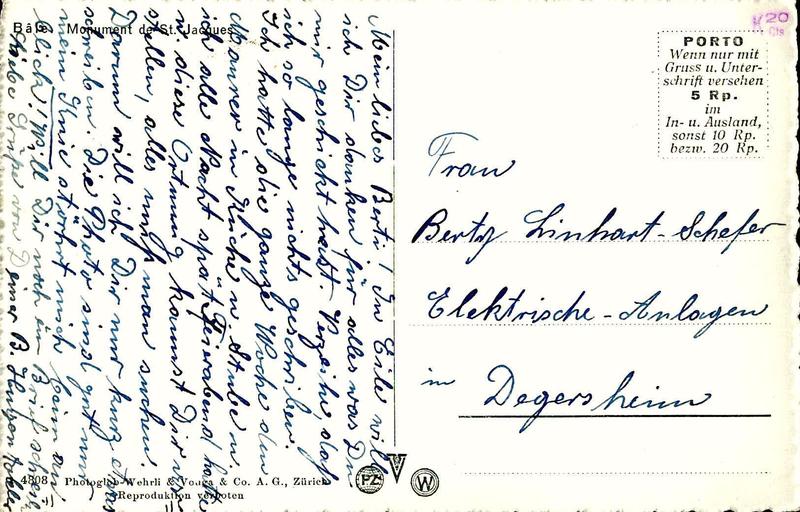 Bâle, Monument de St. Jacques
Mein liebes Berti! In Eile will
ich Dir danken für alles was Du
mir geschickt hast. Verzeihe, dass
ich so lange nichts geschrieben.
Ich hatte die ganze Woche den
Maurer in Küche u Stube u.
ich alle Nacht spät Feierabend hatte
u. diese Ortnung kannst Dir vor
stellen, alles muss man suchen.
Darum will ich Dir nur kurz etwas
schreiben. Die Photo sind gut nur
mein Knie stöhrt mich beim
blick. Will Dir noch ein Brief schreib
Liebe Grüsse von Deiner B.
4808 Photoglob-Wehrli & Vouga & Co. A. G., Zürich
Reproduktion verboten
PZ V W
K 20
Cts
PORTO
Wenn nur mit
Gruss u. Unter-
schrift versehen
5 Rp.
im
In- u. Ausland,
sonst 10 Rp.
bezw. 20 Rp.
Frau
Berty Linhart-Schefer
Elektrische-Anlagen
in Degersheim